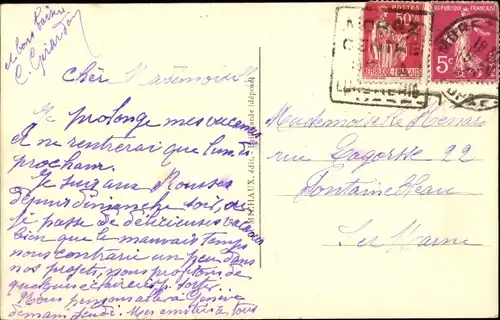 et bons baisers
C. Girardon
Chère Mademoiselle
Je prolonge mes vacances
et ne rentrerai que lundi
prochain.
Je suis aux Rousses
depuis dimanche soir, où
je passe de délicieuses vacances
bien que le mauvais temps
nous contrarie un peu dans
nos projets, nous profitons de
quelques éclaircies
Nous pensons aller à Genève
demain jeudi. Mes amitiés à tous
50c
POSTES
REPUBLIQUE FRANÇAISE
REPUBLIQUE FRANÇAISE
5c
MOREZ
Mademoiselle
rue Lagorsse 22
Fontainebleau
Set Marne
édit.